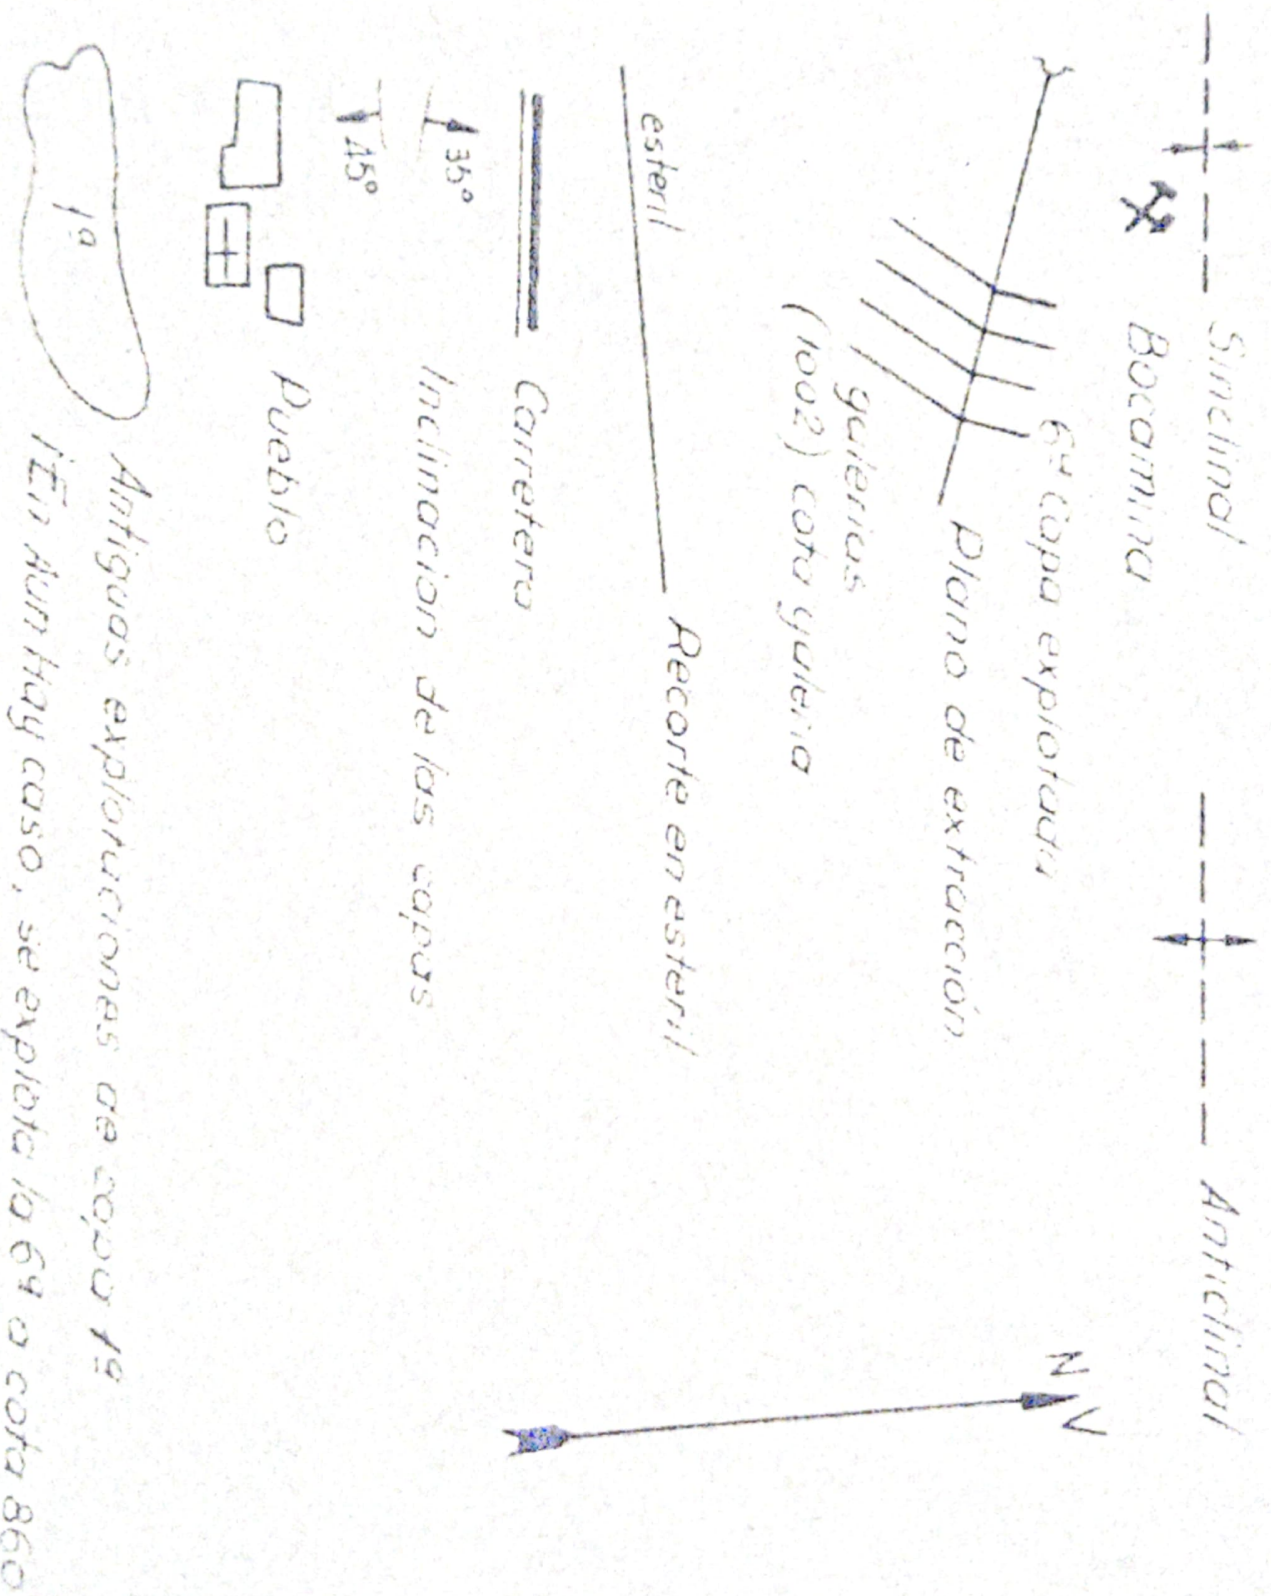 Sinclinal
Anticlinal
Bocamina
6ª capa explotada
Plano de extracción
galerias
(1002) cota galeria
esteril
Recorte en esteril
Carretera
35°
45°
Inclinacion de las capas
Pueblo
1ª
Antiguas explotaciones de capa 1ª
Hay caso, se explota la 6ª a cota 860
N
V